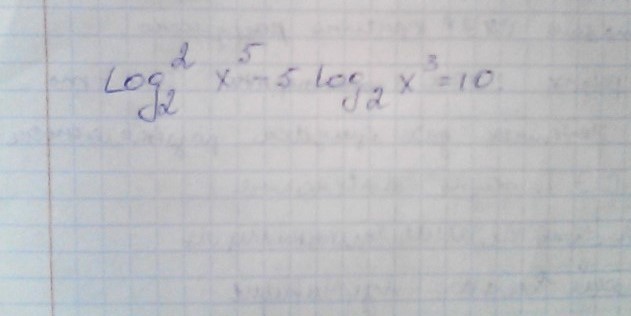 Log₂² x⁵ 5 log₂ x³=10